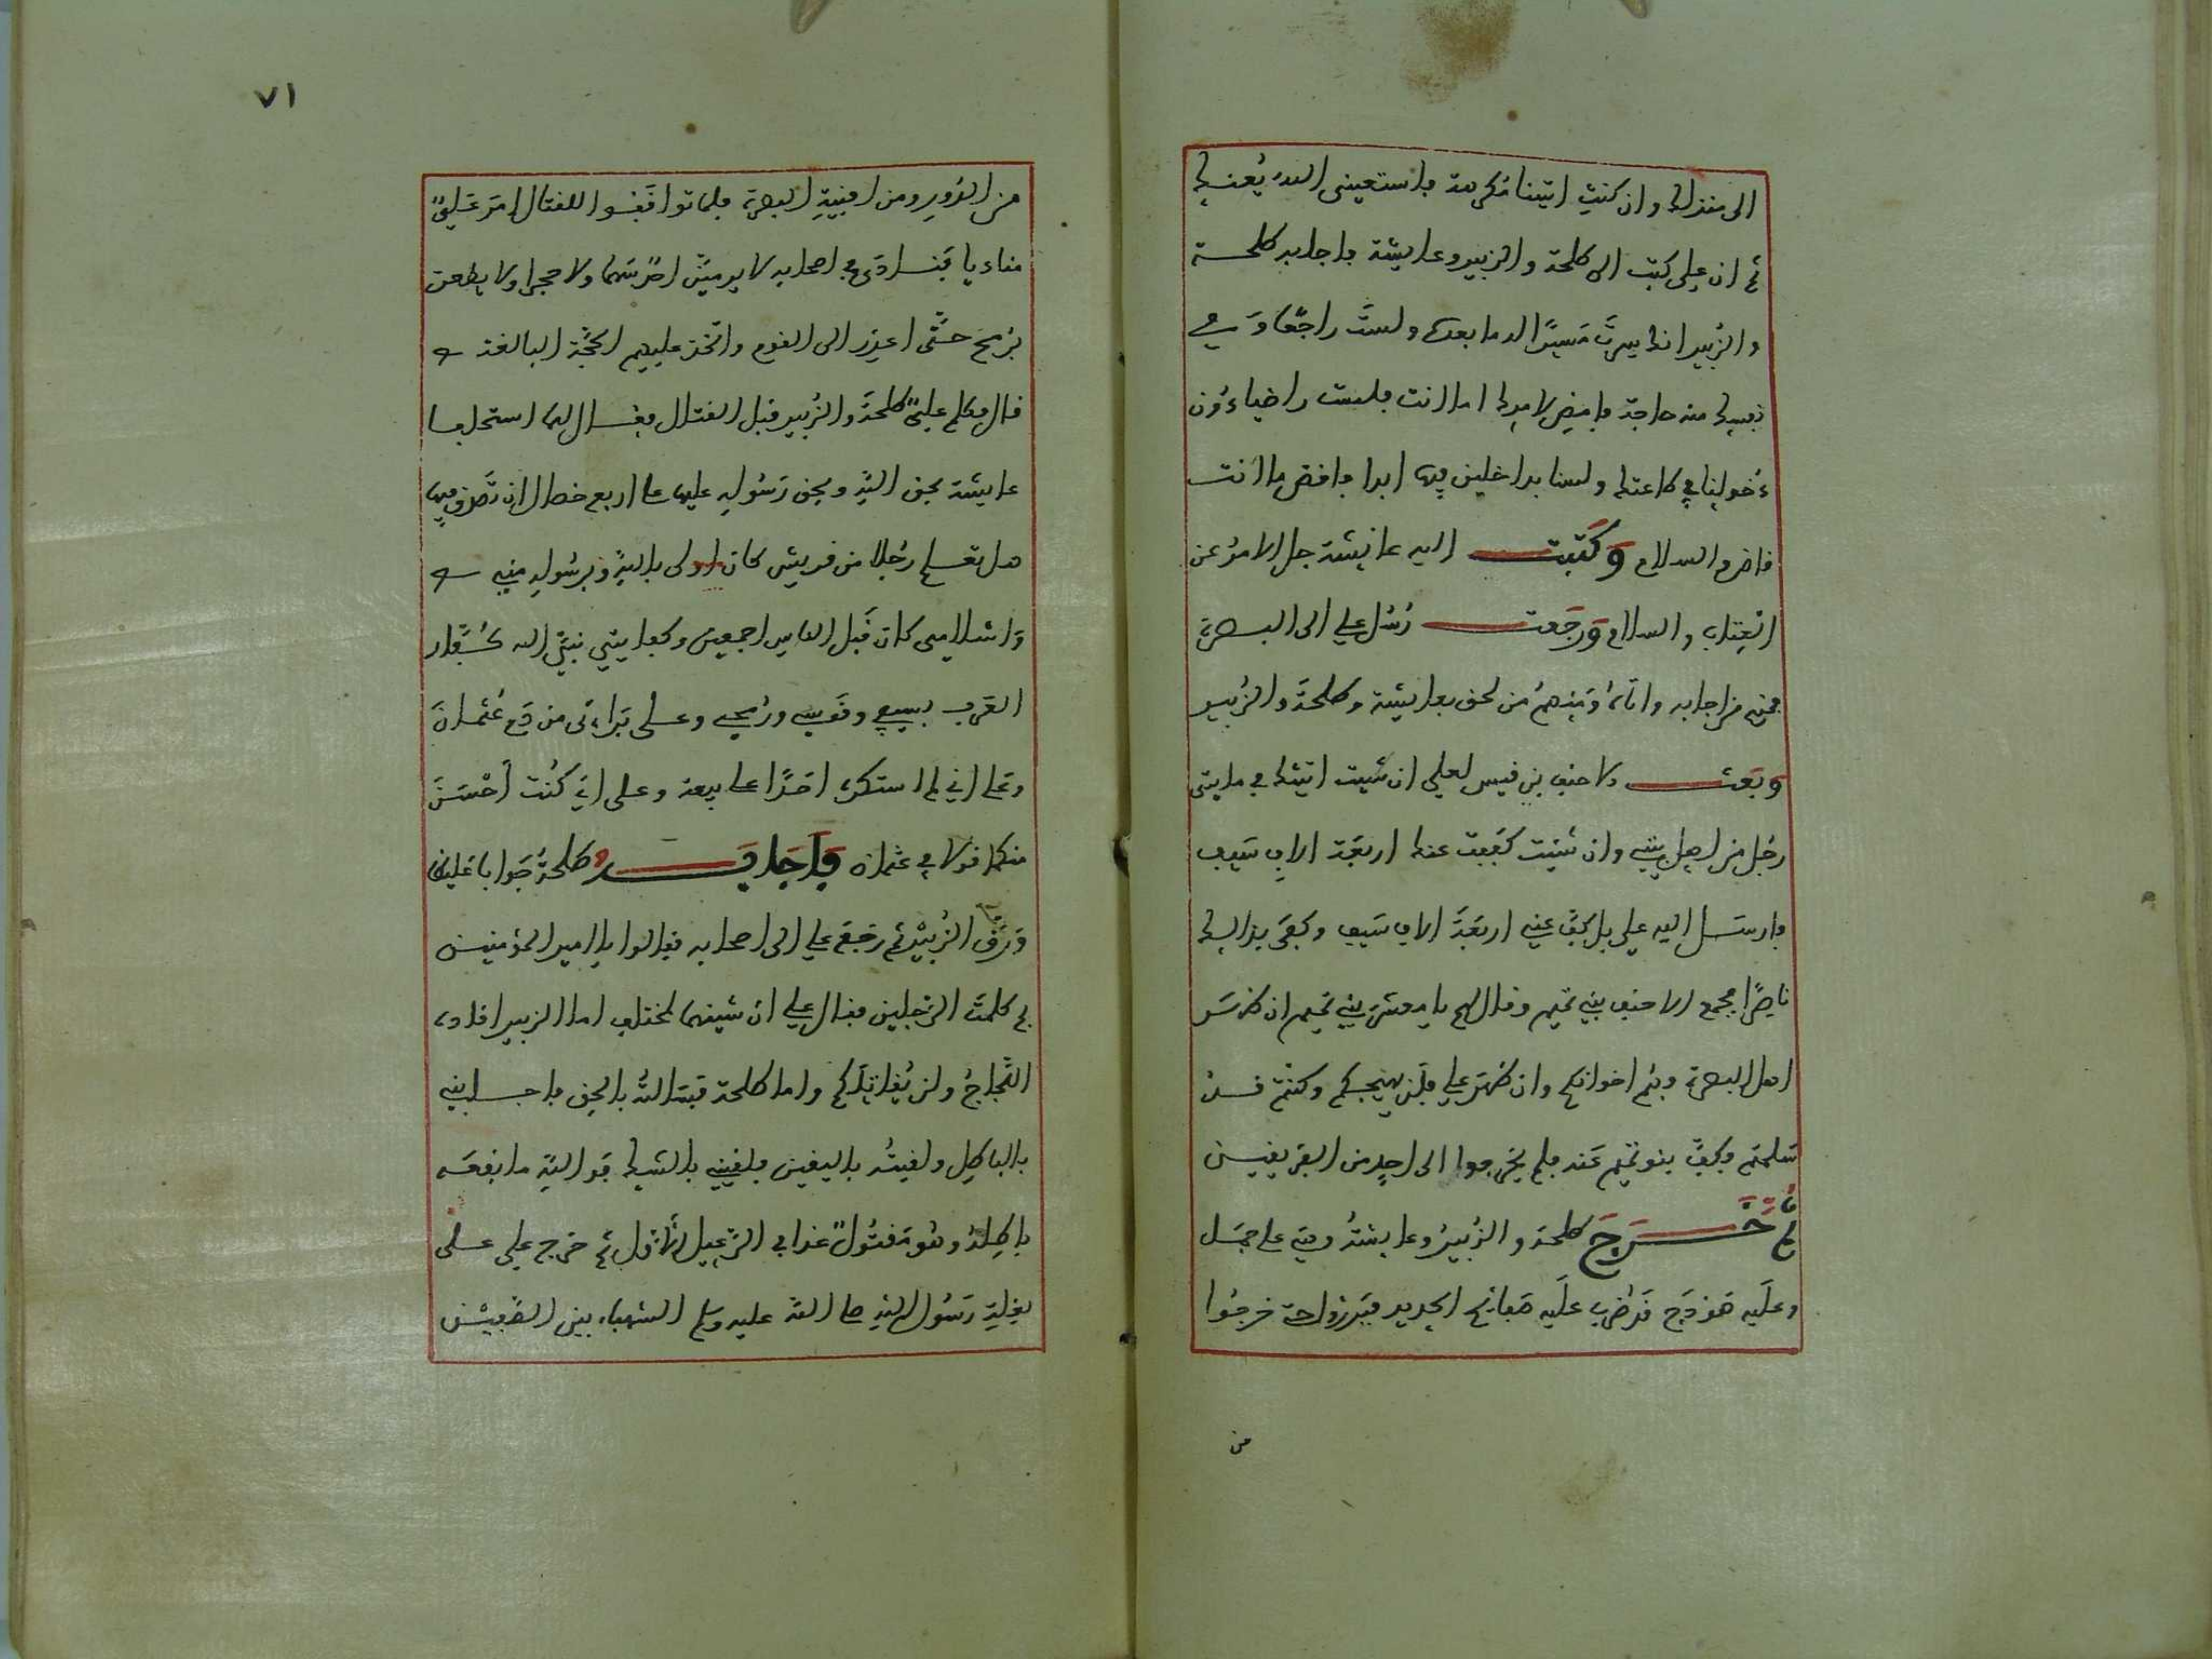 الى منزلك وان كنت اتيتنا مكرهة فاستعيني الله يعنك
ثم ان علي كتب الى طلحة والزبير وعايشة فاجابه طلحة
والزبير انك سرت مسيرا له ما بعده ولست راجعا وفي
نفسك منه حاجة فامض لامرك اما انت فلست راضيا دون
دخولنا في طاعتك ولسنا بداخلين فيها ابدا فاقض ما انت
قاض والسلام وكتبت اليه عايشة جل الامر عن
العتاب والسلام ورجعت رسل علي الى البصرة
فمنهم من اجابه واتاه ومنهم من لحق بعايشة وطلحة والزبير
وبعث الاحنف بن قيس لعلي ان شيت اتيتك في مايتي
رجل من اهل بيتي وان شئت كففت عنك اربعة الاف سيف
فارسل اليه علي بل كف عني اربعة الاف سيف وكفى بذالك
ناصرا فجمع الاحنف بني تميم وقال لهم يا معشر بني تميم ان ظهر
اهل البصرة فهم اخوانكم وان ظهر علي فلن يهيجكم وكنتم قد
سلمتم فكف بنو تميم عنه فلم يخرجوا الى احد من الفريقين
ثم خرج طلحة والزبير وعايشة وهي على جمل
وعليه هودج قد ضرب عليه صفائح الحديد فبرزوا حتى خرجوا
من
٧١
من الدور ومن افنية البصرة فلما توافقوا للقتال امر علي
مناديا فنادى في اصحابه لا يرمين احد سهما ولا حجرا ولا يطعن
برمح حتى اعذر الى القوم واتخذ عليهم الحجة البالغة
قال فكلم علي طلحة والزبير قبل القتال فقال لهما استحلفا
عايشة بحق الله وبحق رسوله عليها على اربع خصال ان تصدق فيها
هل تعلم رجلا من قريش كان اولى بالله وبرسوله مني
واسلامي كان قبل الناس اجمعين وكفايتي نبي الله كفار
العرب بسيفي وقوسي ورمحي وعلى براءتي من دم عثمان
وعلى اني لم استكره احدا على بيعة وعلى اني كنت احسن
منكما قولا في عثمان فاجابه طلحة جوابا غليظا
ورق الزبير ثم رجع علي الى اصحابه فقالوا يا امير المؤمنين
بم كلمت الرجلين فقال علي ان شينهما لمختلف اما الزبير فقاده
اللجاج ولن يقاتلكم واما طلحة فبته الله بالحق فاجابني
بالباطل ولقيته باليقين فلقيني بالشك فوالله ما نفعه
باطله وهو مقتول غدا في الرعيل الاول ثم خرج علي على
بغلة رسول الله صلى الله عليه وسلم الشهباء بين الصفين